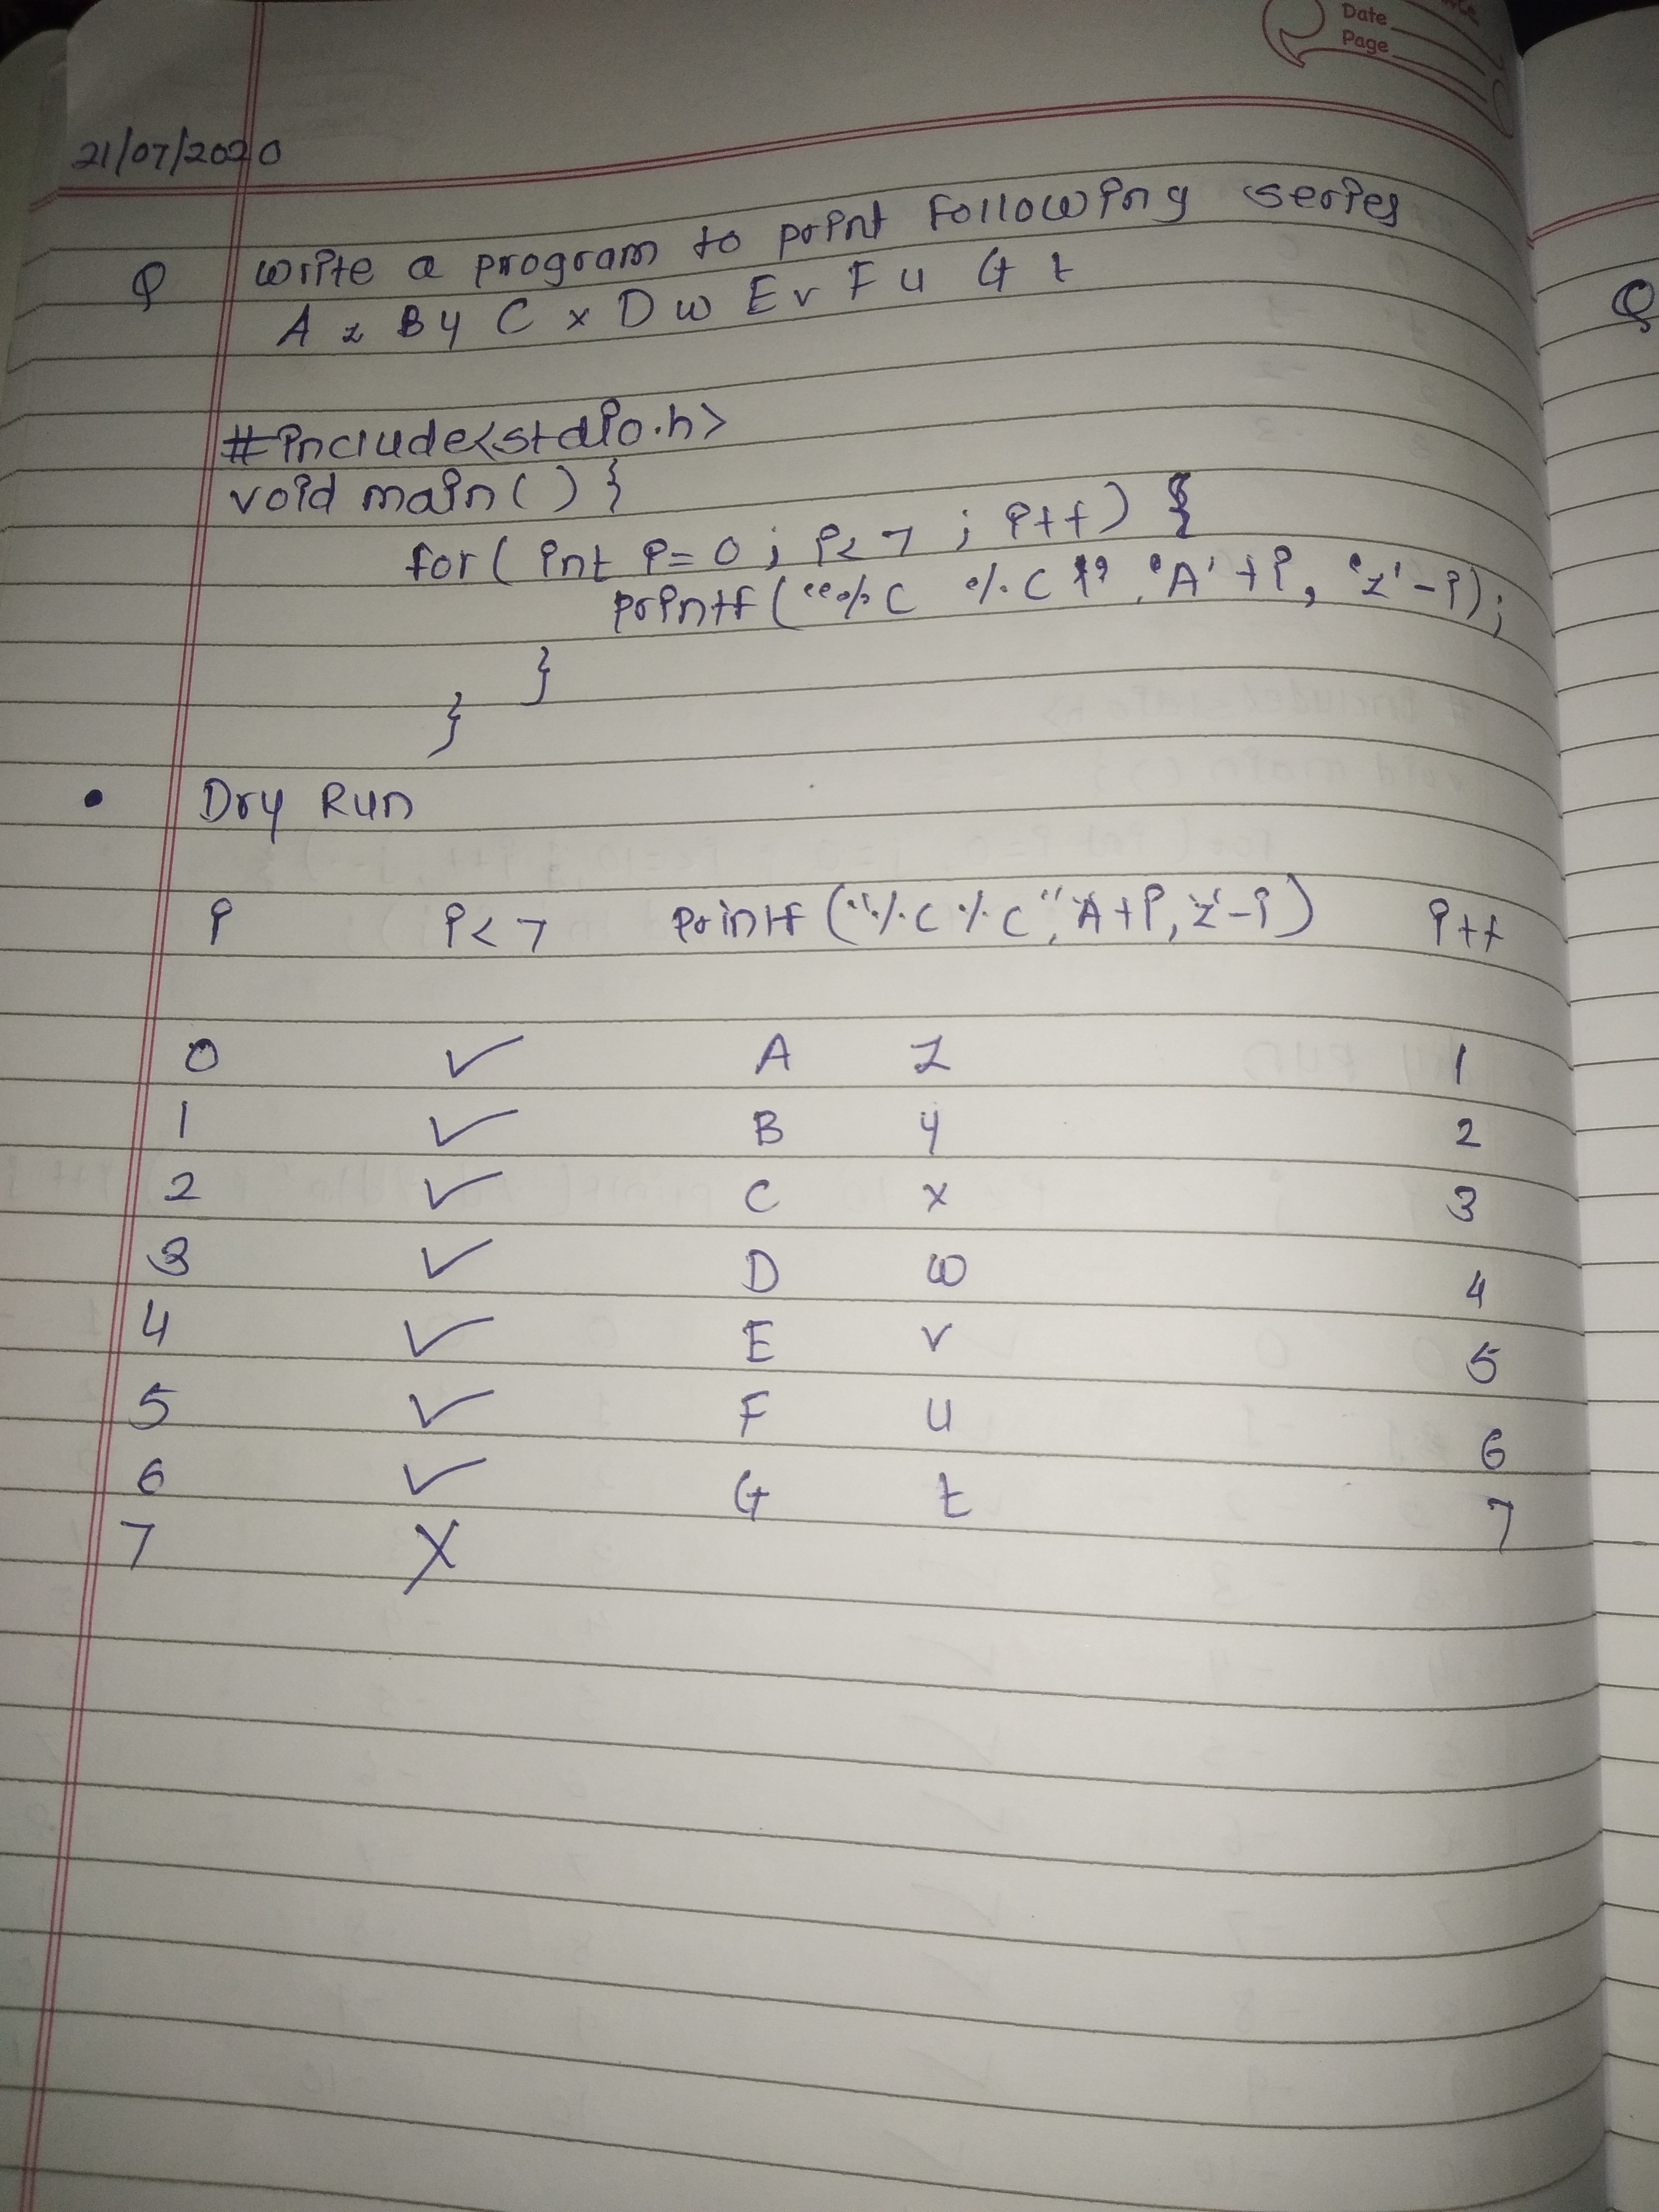 Date
Page
21/07/2020
Q Write a program to print following series
A z B y C x D w E v F u G t
Q
#include<stdio.h>
void main() {
for( int i=0; i<7 ; i++) {
printf("%c %c", 'A'+i, 'z'-i);
}
}
• Dry Run
i i<7 printf("%c %c", 'A'+i, 'z'-i) i++
0 ✓ A z 1
1 ✓ B y 2
2 ✓ C x 3
3 ✓ D w 4
4 ✓ E v 5
5 ✓ F u 6
6 ✓ G t 7
7 X